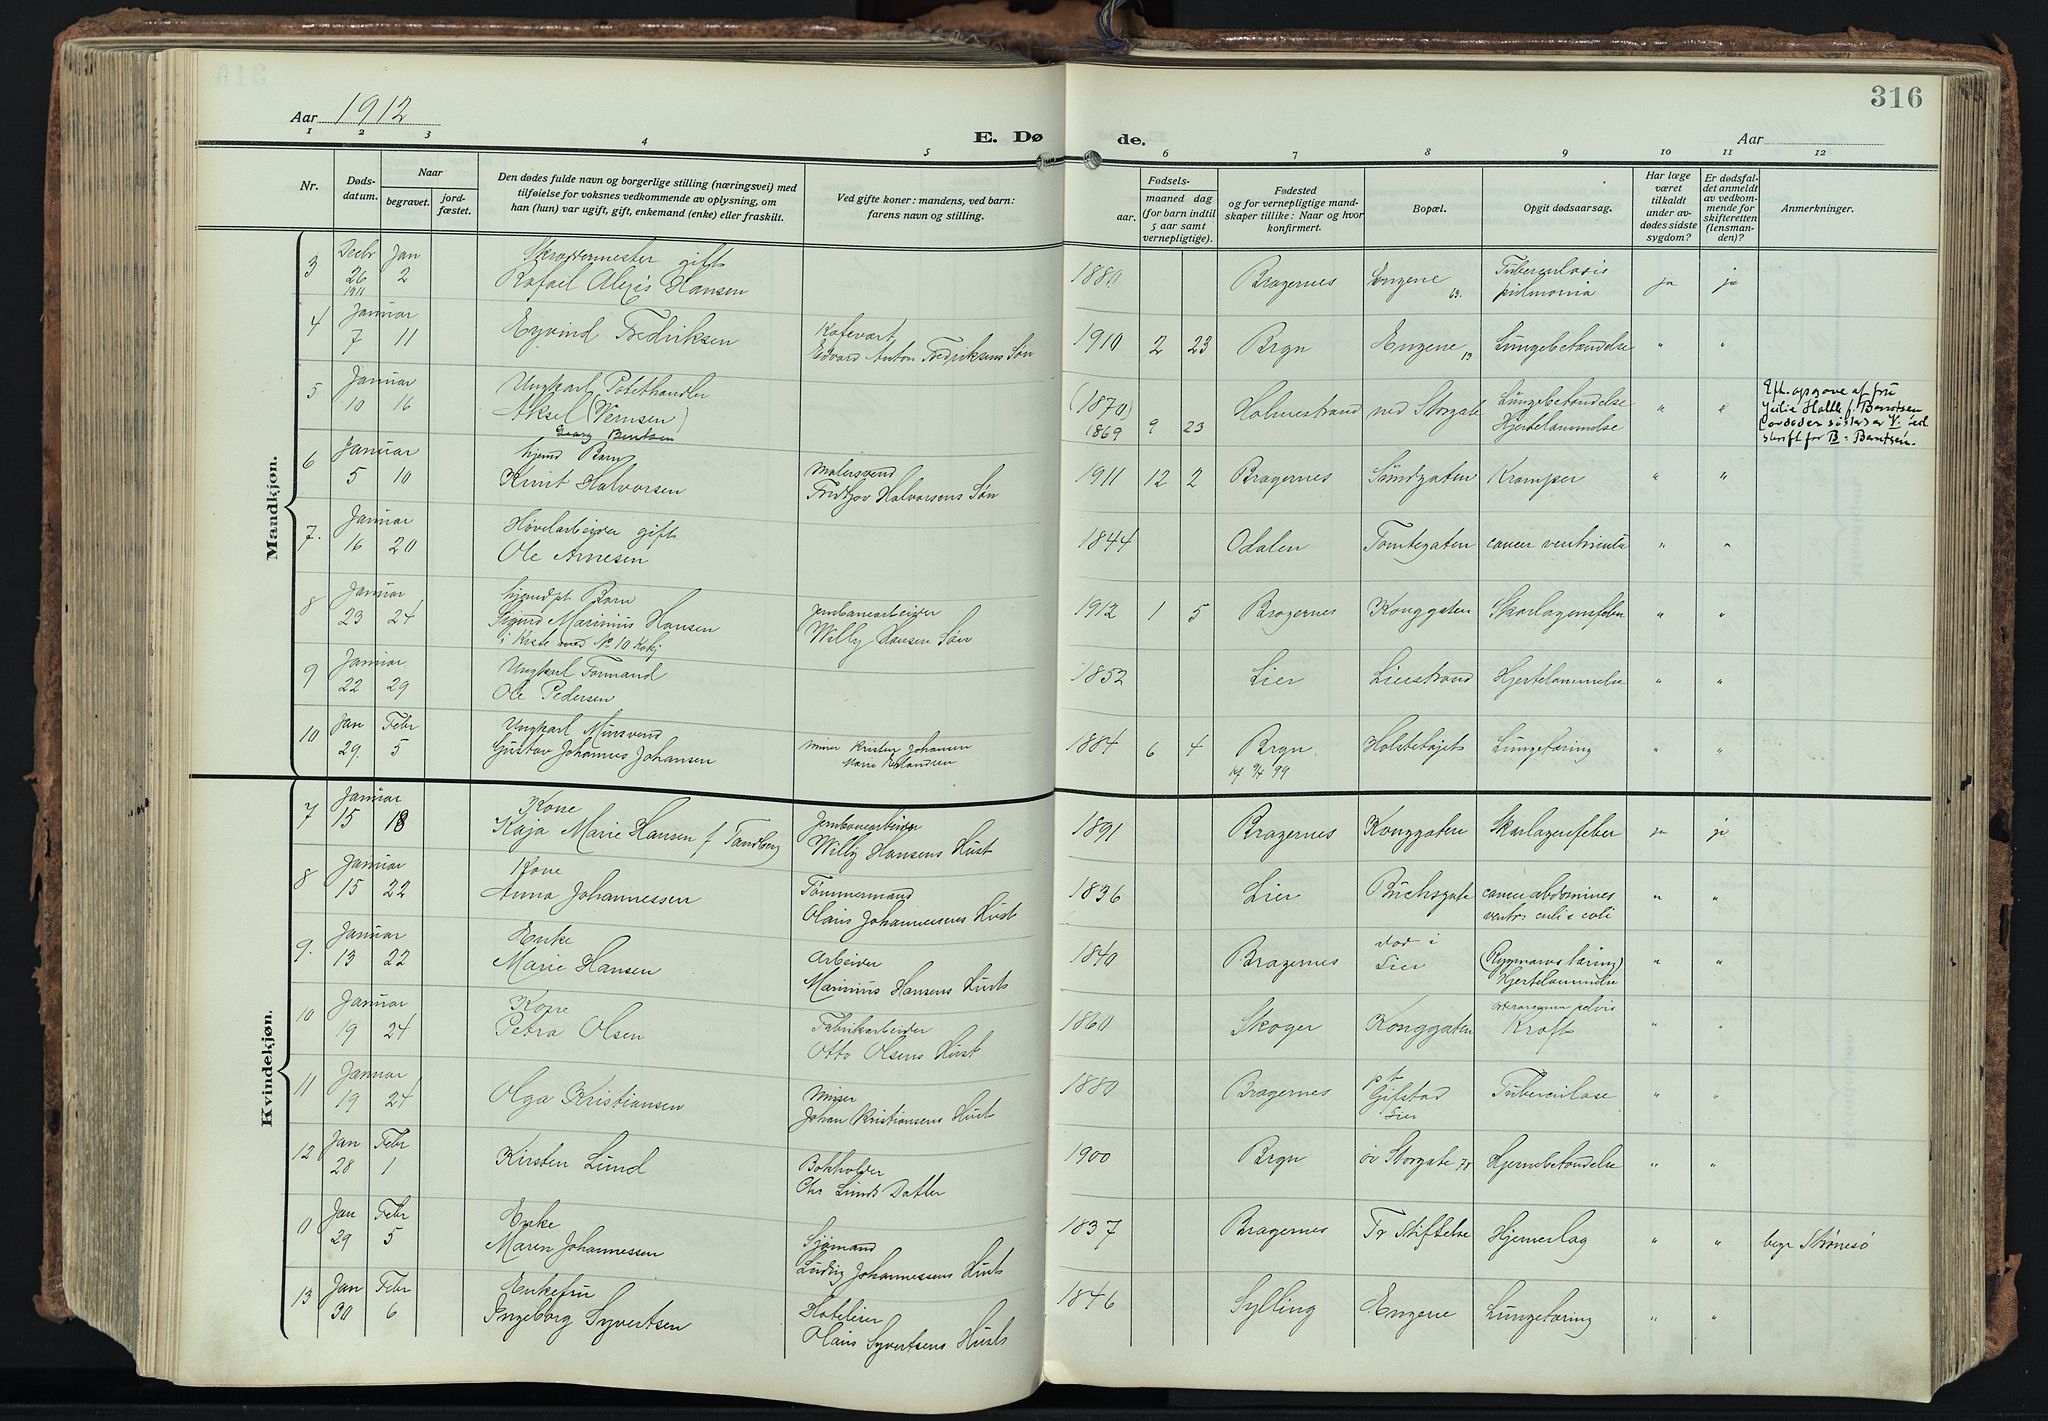 316
Aar 1912
E. Døde.
Aar
1 2 3 4 5 6 7 8 9 10 11 12
Nr.
Døds-
datum.
Naar
begravet.
jord-
fæstet.
Den dødes fulde navn og borgerlige stilling (næringsvei) med
tilføielse for voksnes vedkommende av oplysning, om
han (hun) var ugift, gift, enkemand (enke) eller fraskilt.
Ved gifte koner: mandens, ved barn:
farens navn og stilling.
Fødsels-
aar. maaned dag
(for barn indtil
5 aar samt
vernepligtige).
Fødested
og for vernepligtige mand-
skaper tillike: Naar og hvor
konfirmert.
Bopæl.
Opgit dødsaarsag.
Har læge
været
tilkaldt
under av-
dødes sidste
sygdom?
Er dødsfal-
det anmeldt
av vedkom-
mende for
skifteretten
(lensman-
den)?
Anmerkninger.
Mandkjøn.
3 Decbr 26 1911 Jan 2 gift
Rafael Alexis Hansen 1880 Bragernes Engene 63. Tuberculosis
pulmonia ja ja
4 Januar 7 11 Eyvind Fredriksen Kafevert
Edvard Anton Fredriksens Søn 1910 2 23 Brgn Engene 13 Lungebetændelse " "
5 Januar 10 16 Ungkarl Potethandler
Aksel (Vernsen)
Georg Bentsen (1870)
1869 9 23 Holmestrand ned Storgate Lungebetændelse
Hjertelammelse " "
Eft. opgave af fru
6 Januar 5 10 Barn
Knut Halvorsen Malersvend
Fridtjov Halvorsens Søn 1911 12 2 Bragernes Strandgaten Kramper " "
7. Januar 16 20 Høvelarbeider gift
Ole Arnesen 1844 Odalen Tomtegaten cancer " "
8 Januar 23 24 hjemdpt Barn
Sigurd Marinius Hansen
i Kiste med No 10 Jernbanearbeider
Willy Hansen Søn 1912 1 5 Bragernes Konggaten Skarlagensfeber " "
9 Januar 22 29 Ungkarl Formand
Ole Pedersen 1852 Lier Lierstrand Hjertelammelse " "
10 Jan 29. Febr 5 Ungkarl Mursvend
Gustav Johannes Johansen Murer Kristen Johansen
Marie 1884 6 4 Brgn
99 Lungetæring " "
Kvindekjøn.
7 Januar 15 18 Kone
Kaja Marie Hansen f Tandberg Jernbanearbeider
Willy Hansens Hust 1891 Bragernes Konggaten Skarlagensfeber ja ja
8 Januar 15 22 Kone
Anna Johannessen Tømmermand
Olaus Johannessens Hust 1836 Lier Buchsgate cancer abdomines " "
9. Januar 13 22 Enke
Marie Hansen Arbeider
Marinius Hansens Hust 1840 Bragernes død i
Lier (Rygmarvstæring)
Hjertelammelse " "
10 Januar 19 24 Kone
Petra Olsen Fabrikarbeider
Otto Olsens Hust 1860 Skoger Konggaten pelvis
Kræft " "
11 Januar 19 24 Olga Kristiansen Murer
Johan Kristiansens Hust 1880 Bragernes pt
Gifstad
Lier Tuberculose " "
12 Jan 28 Febr 1 Kirsten Lund Bokholder
Chr Lunds Datter 1900 Brgn øv Storgate Hjernebetændelse " "
0 Jan 29 Febr 5 Enke
Maren Johannessen Sjømand
Ludvig Johannessens Hust 1837 Bragernes Tr Stiftelse Hjerneslag " " begr Strømsø
13 Jan 30 Febr 6 Enkefru
Ingeborg Syvertsen Hoteleier
Olaus Syvertsens Hust 1846 Sylling Engene Lungetæring " "